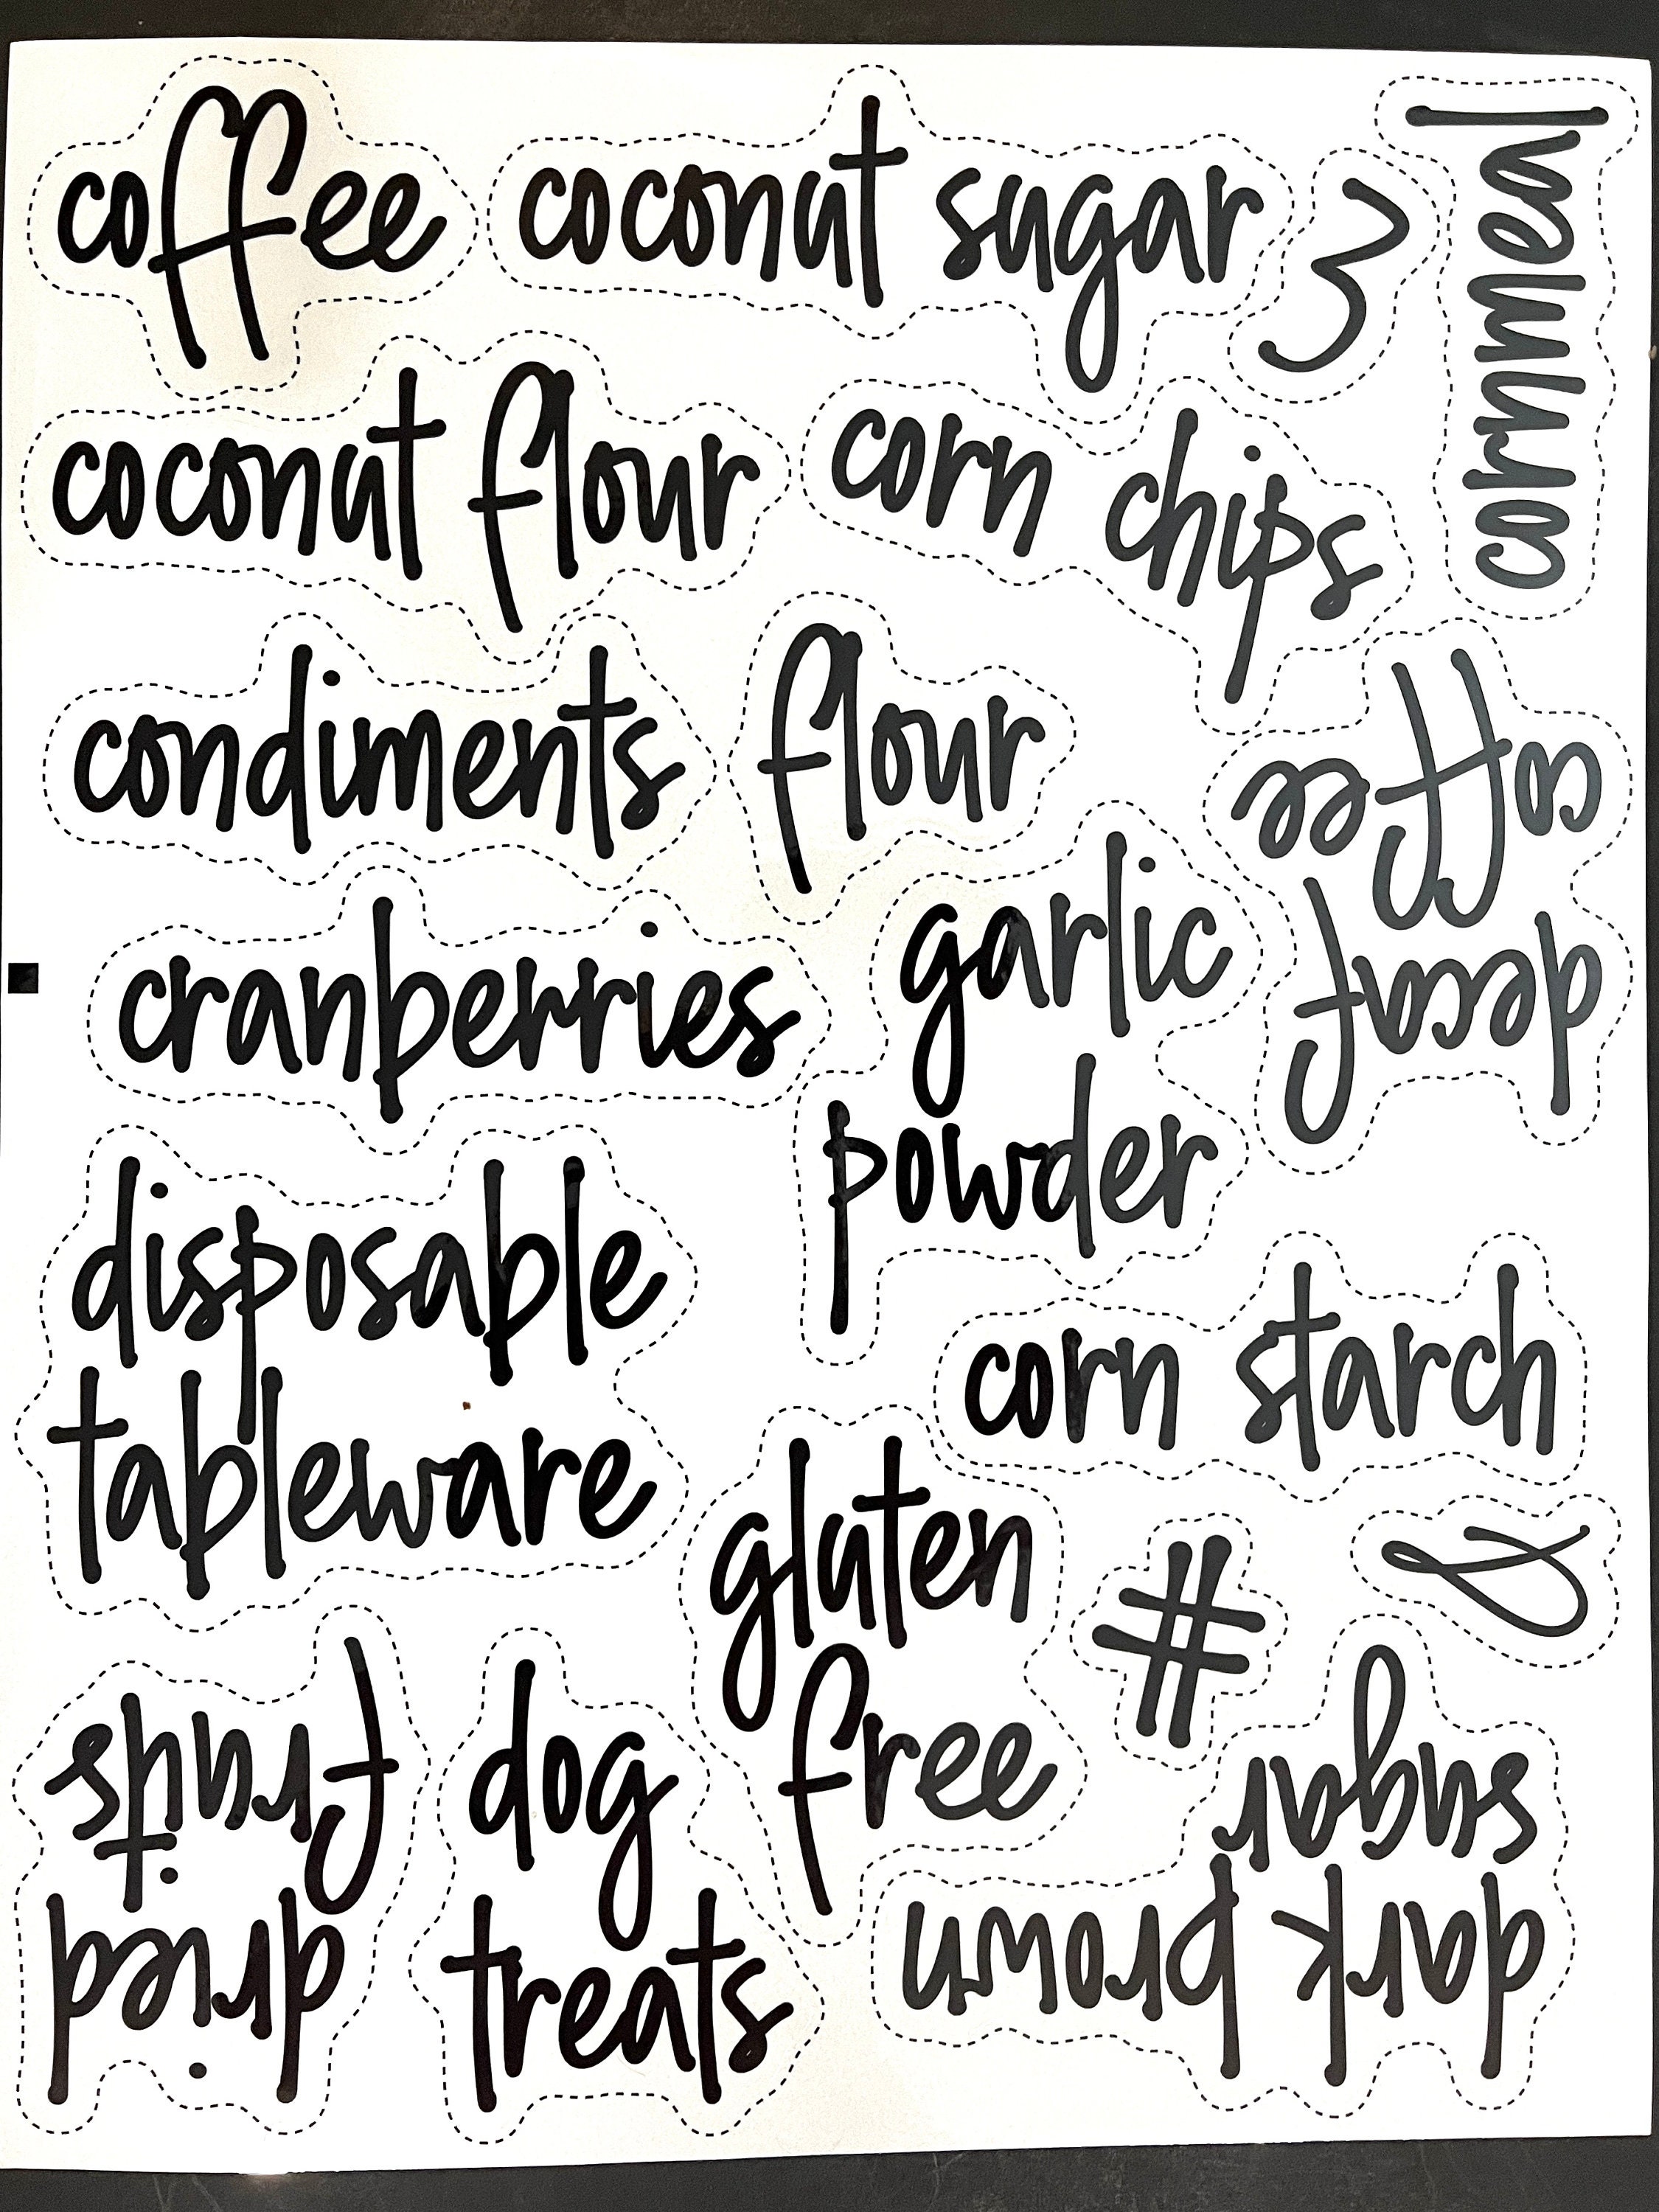 coffee
coconut sugar
3
cornmeal
coconut flour
corn chips
condiments
flour
decaf
coffee
cranberries
garlic
powder
disposable
tableware
corn starch
gluten
free
#
&
dried
fruits
dog
treats
dark brown
sugar